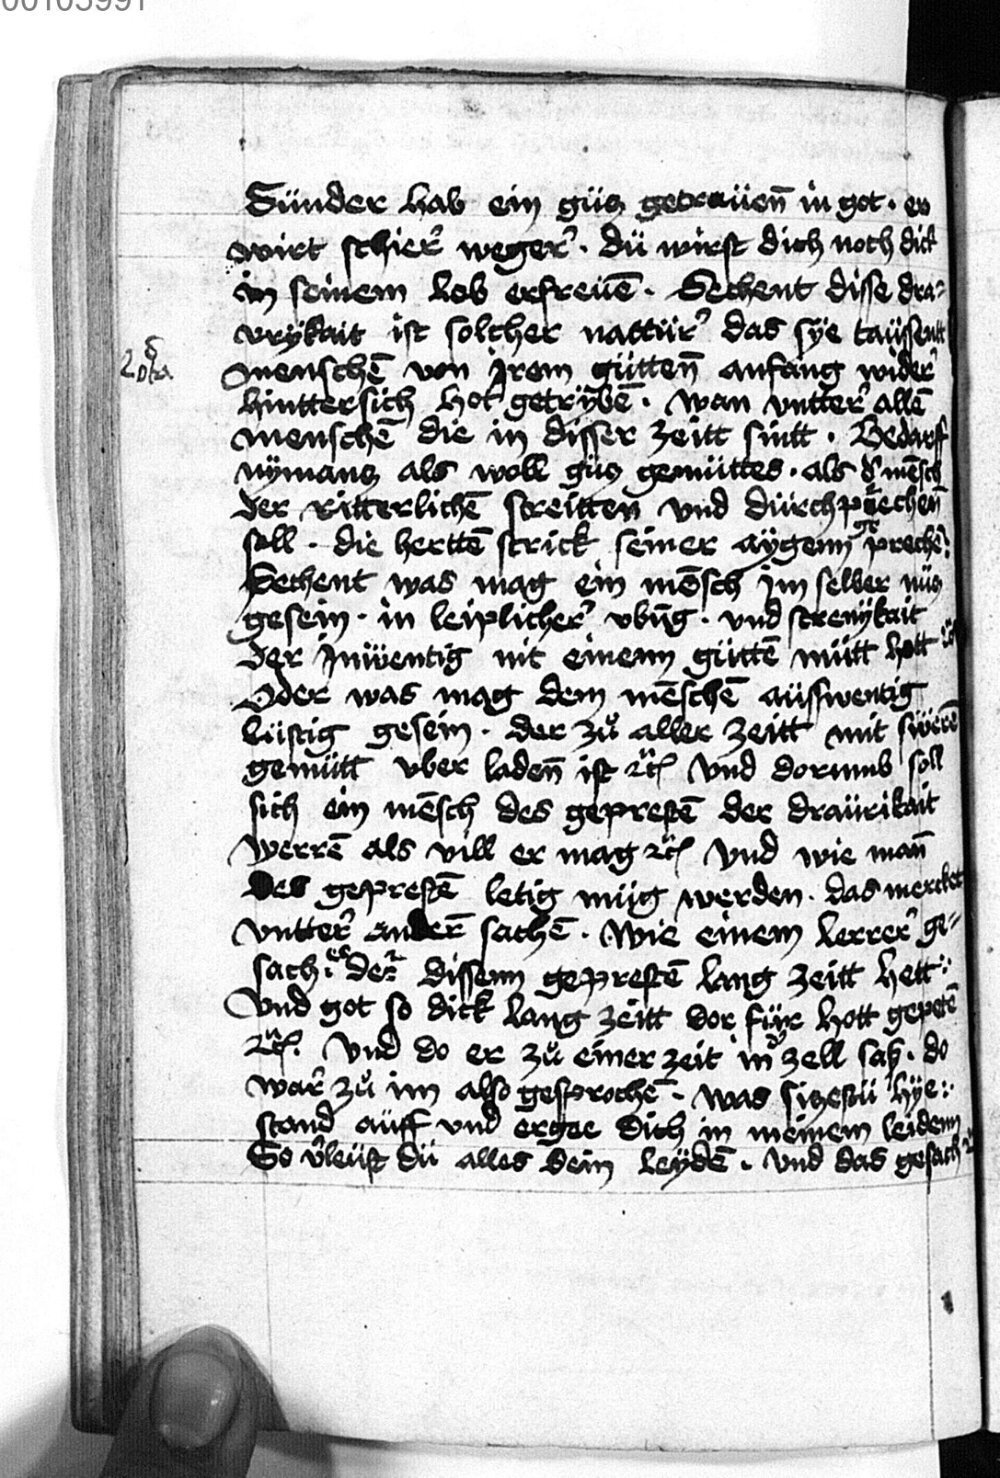 00103991
Sünder hab ein gůs getraüen̄ in got · es
wirt schier weger · dü wirst dich noch dick
in seinem lob erfreüē · Sechent disse dra-
vrykait ist solcher nattür das sÿe taüsentt
Nota
menschē von Jrem güttenn̄ anfang wider
hinttersich hot getrÿbē · wan vntter allē
menschē die in disser zeitt sintt · Bedarff
nÿmans als woll gůs gemüttes · als d mēsch
der ritterlichē streitten vnd dürchprechen̄
soll · die herttē strick seiner aÿgenn geprechē :
Sechent was mag ein mēsch im selber nüs
gesein · in leiplicher vbūg · vnd strenÿkait
der Jnwentig nit einenn güttē mütt hott
oder was mag dem mēschē aüsswentig
lüstig gesein · der zů aller zeitt mit swerē
gemütt vber laden̄ ist ꝛc̄ vnd dorumb soll
sich ein mēsch des geprestē der draürikait
werrē als vill er mag ꝛc̄ vnd wie man̄
des geprestē letig müg werden · das mercket
vntter anderr̄ sachē · Wie einem lerrer ge-
sach · der dissenn geprestē lang zeitt hett :
Vnd got so dick lang zeitt dor für hott gepetē
ꝛc̄ · Vnd do er zů einer zeit in d zell sas · do
war zů im also gesprochē · was sizestü hÿe :
stand aüff vnd ergee dich in meinem leidenn
So v̄leüst dü alles dein leÿdē · vnd das gesach